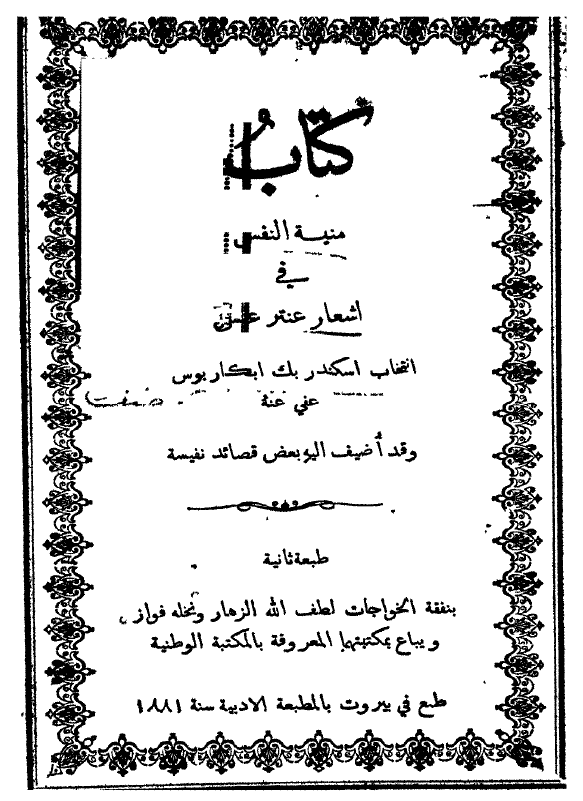 كتابُ
منية النفس
في
اشعار عنتر عبس
انتخاب اسكندر بك ابكاريوس
عفي عنهُ
وقد أُضيف اليهِ بعض قصائد نفيسة
طبعة ثانية
بنفقة الخواجات لطف الله الزهار ونخله فواز
ويباع بمكتبتهما المعروفة بالمكتبة الوطنية
طبع في بيروت بالمطبعة الادبية سنة ١٨٨١